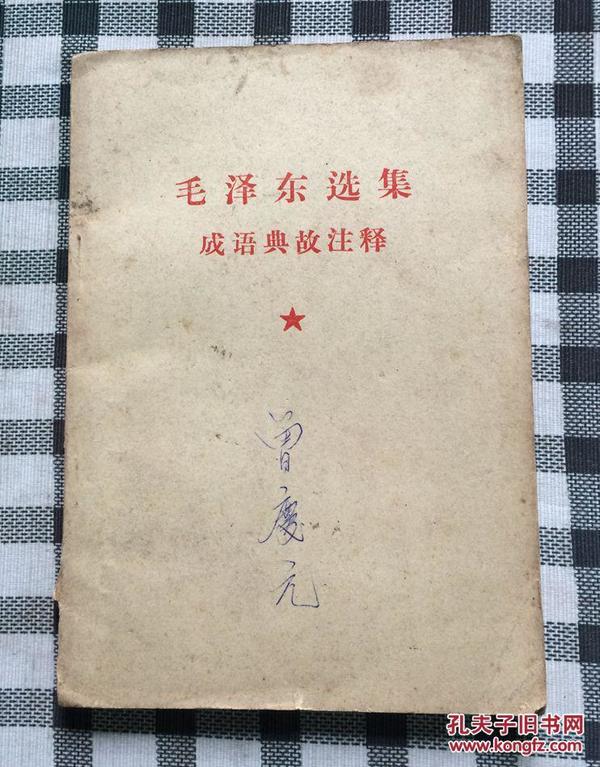 毛泽东选集
成语典故注释
曾慶元
孔夫子旧书网
www.kongfz.com